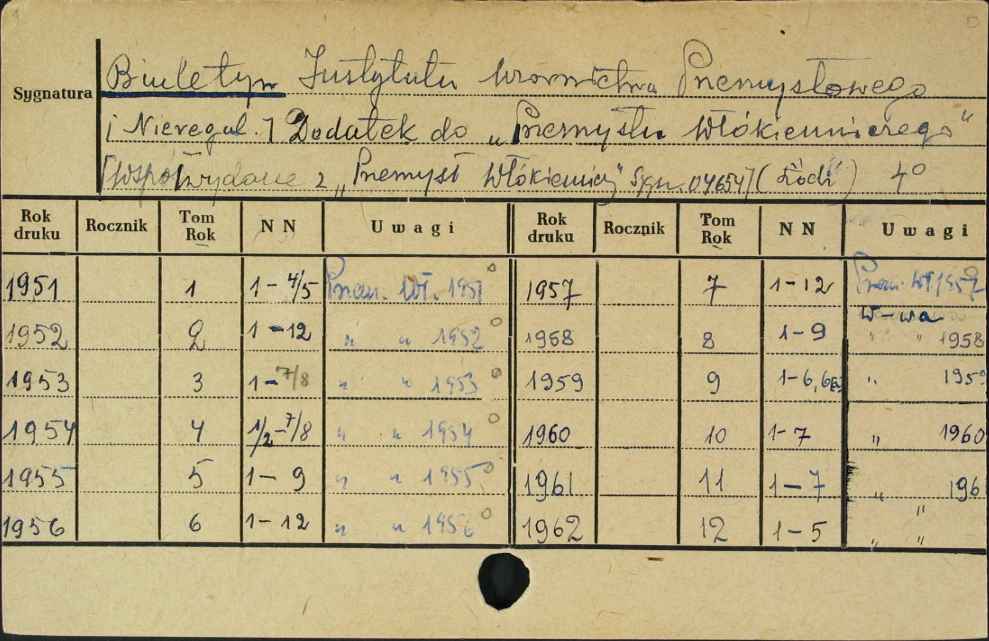 Sygnatura
Biuletyn Instytutu Wzornictwa Przemysłowego
[Nieregul.] Dodatek do „Przemysłu Włókienniczego"
[Współwydane z „Przemysł Włókienniczy" Sygn. 04654] (Łódź) 4°
Rok druku Rocznik Tom Rok NN Uwagi Rok druku Rocznik Tom Rok NN Uwagi
1951 1 1-4/5 Przem. Wł. 1951 1957 7 1-12 Przem. Wł 1957
W-wa
1952 2 1-12 " " 1952 1958 8 1-9 " " 1958
1953 3 1-7/8 " " 1953 1959 9 1-6, " 1959
1954 4 1/2-7/8 " " 1954 1960 10 1-7 " 1960
1955 5 1-9 " " 1955 1961 11 1-7 " 196
1956 6 1-12 " " 1956 1962 12 1-5 " "